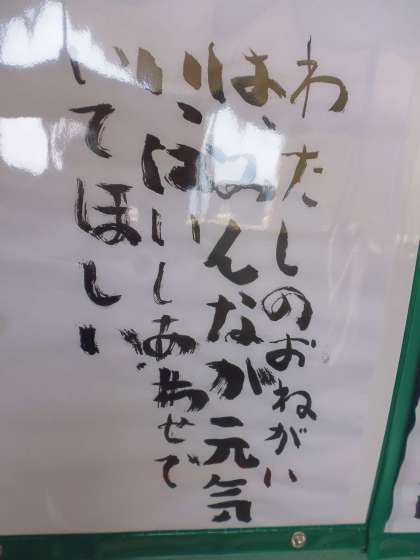 わたしのおねがい
は、みんなが元気
いっぱいしあわせで
いてほしい